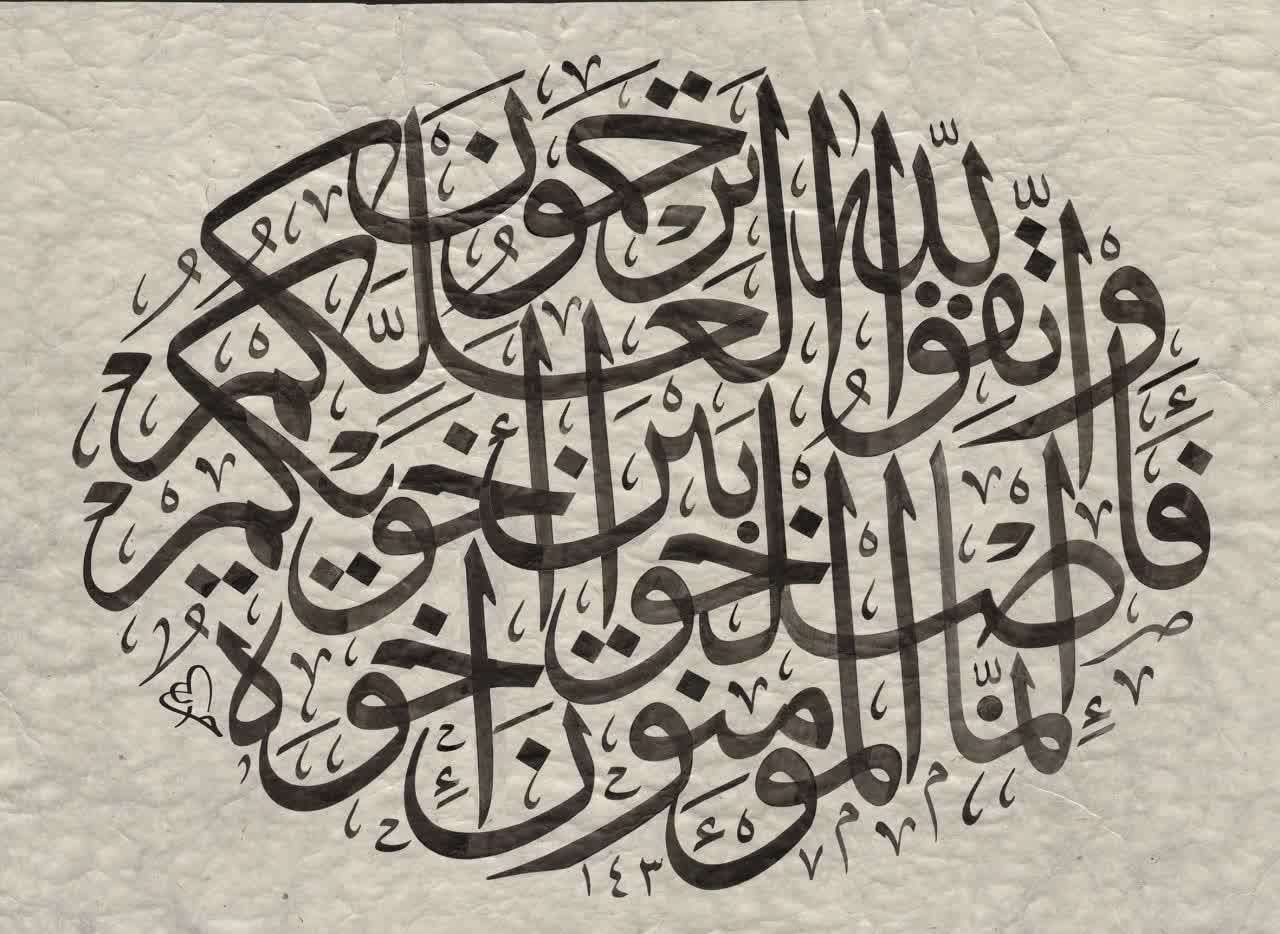 إنما المؤمنون إخوة
فأصلحوا بين أخويكم
واتقوا الله لعلكم ترحمون
١٤٣